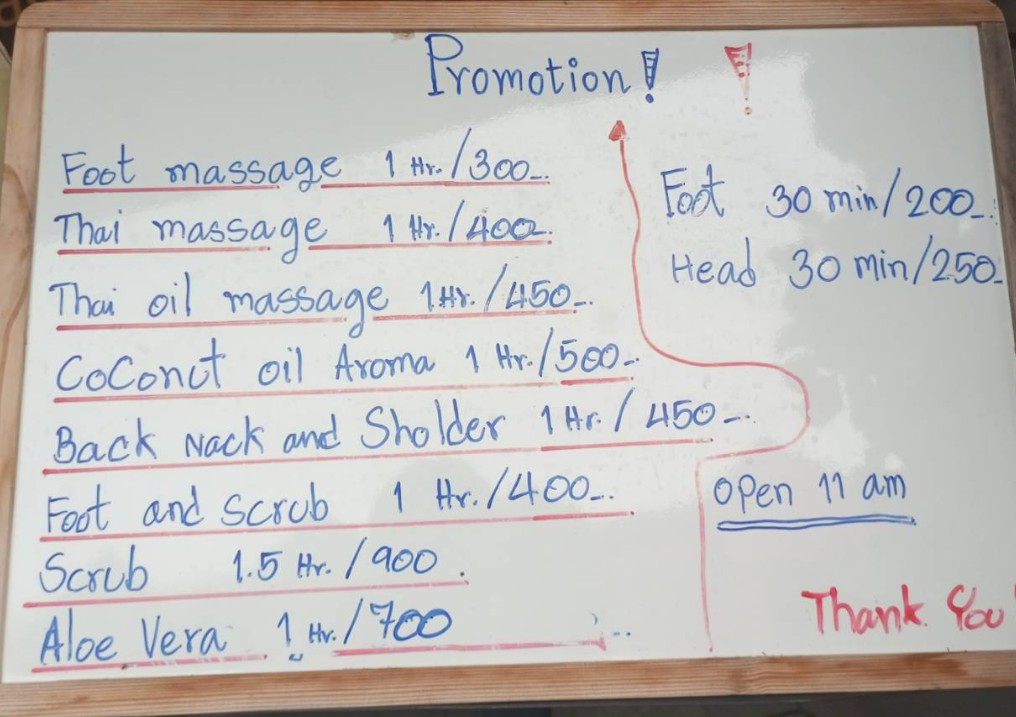 Promotion! !
Foot massage 1 Hr./300-.
Thai massage 1 Hr./400-.
Thai oil massage 1 Hr./450-.
CoConut oil Aroma 1 Hr./500-.
Back Nack and Sholder 1 Hr./450-.
Foot and Scrub 1 Hr./400-.
Scrub 1.5 Hr./900.
Aloe Vera 1 Hr./700
Foot 30 min/200-.
Head 30 min/250-
open 11 am
Thank You